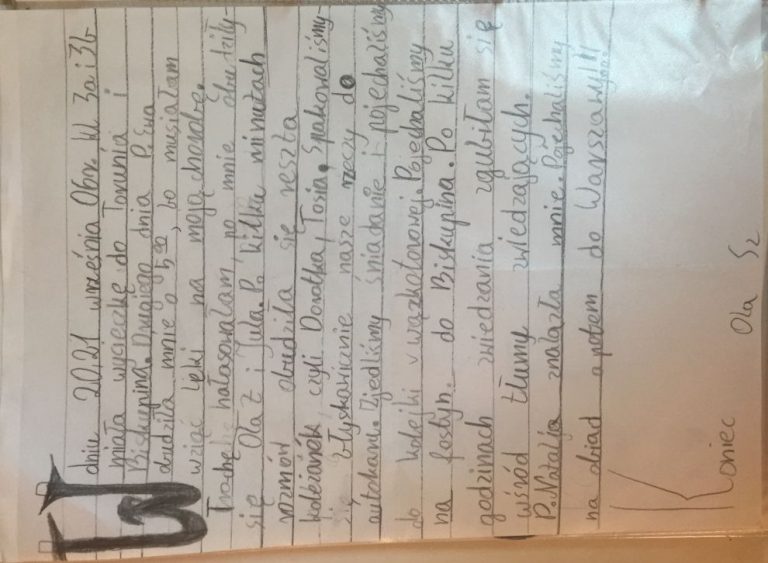 W dniu 20.21 września Obn. kl 3a i 3b
miała wycieczkę do Torunia i
Biskupina. Drugiego dnia P. Ewa
obudziła mnie o 5⁰⁰, bo musiałam
wziąć leki na moją chorobę.
Trochę hałasowałam, po mnie obudziły-
się Ola Z i Jula. Po kilku minutach
rozmów obudziła się reszta
koleżanek, czyli Dorotka, Tosia. Spakowaliśmy-
się błyskawicznie nasze rzeczy do
autokaru. Zjedliśmy śniadanie i pojechaliśmy
do kolejki wąskotorowej. Pojechaliśmy
na festyn do Biskupina. Po kilku
godzinach zwiedzania zgubiłam się
wśród tłumy zwiedzających.
P. Natalia znalazła mnie. Pojechaliśmy
na obiad a potem do Warszawy!!!
Koniec
Ola Sz